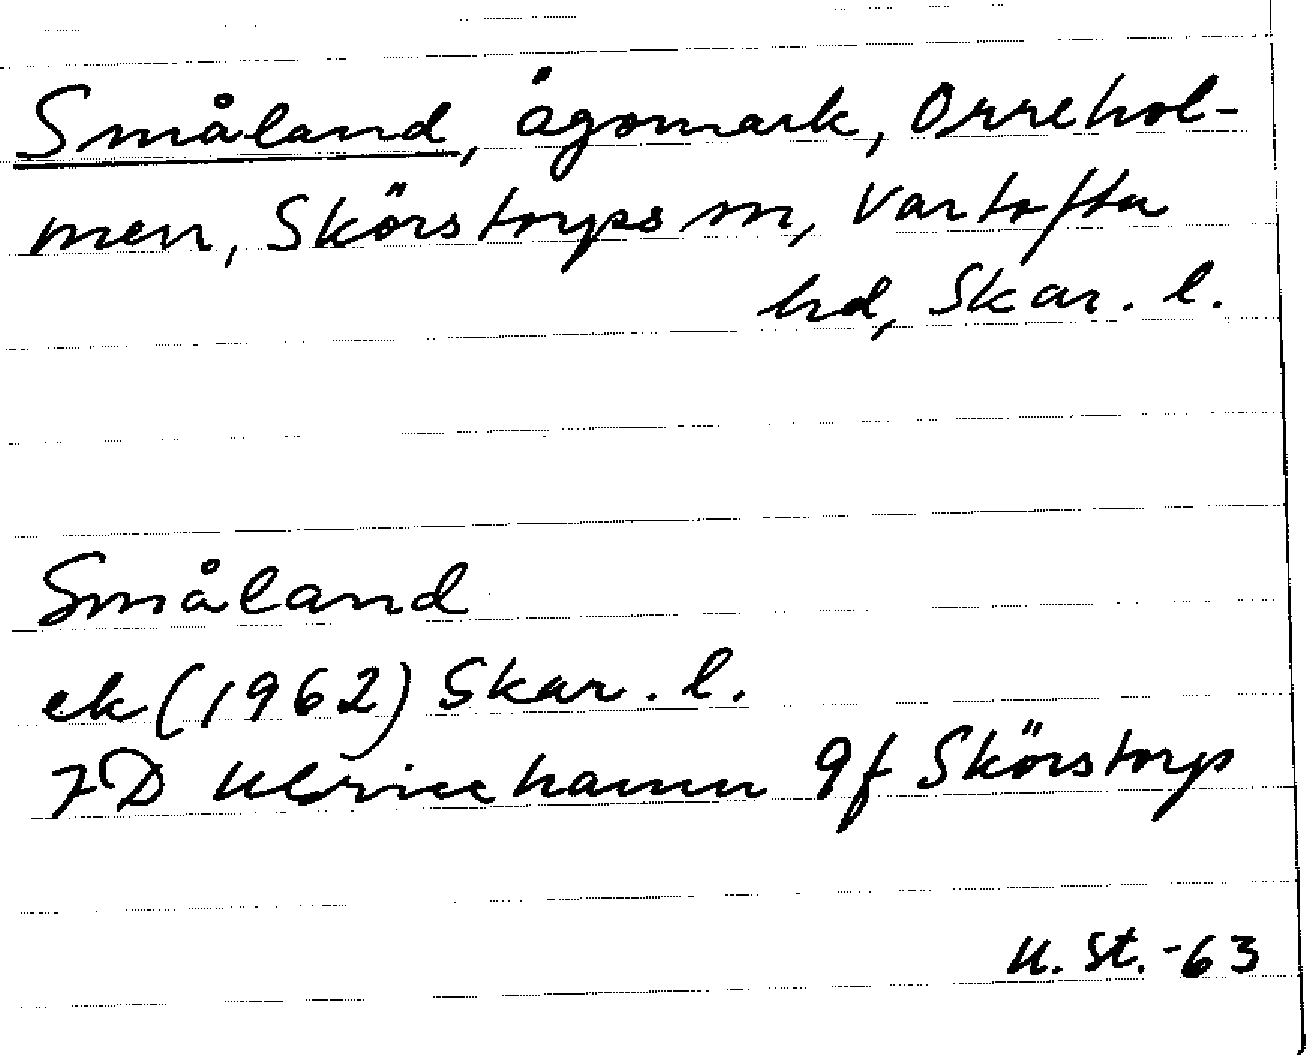 Småland, ägomark, Orrehol-
men, Skörstorps sn, Vartofta
hd, Skar. l.
Småland
ek (1962) Skar. l.
7D Ulricehamn 9f Skörstorp
U. St. -63